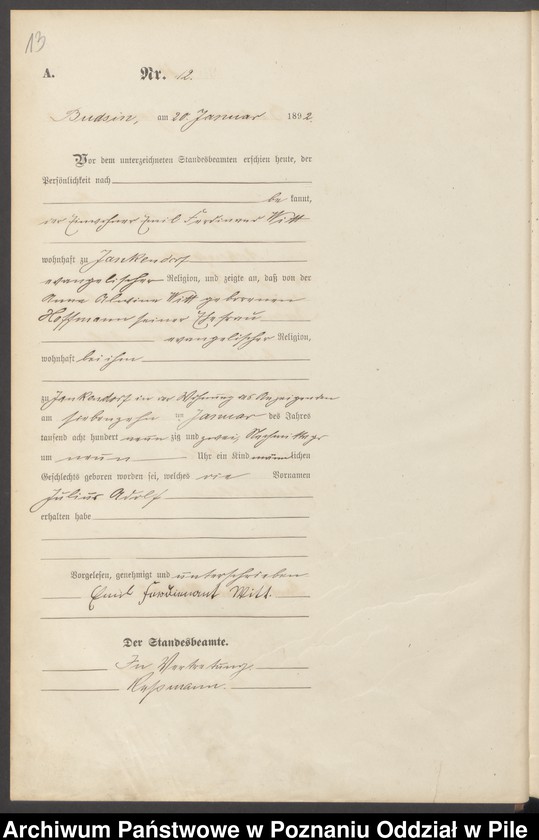 13
A. Nr. 12.
Budsin, am 20. Januar 1892.
Vor dem unterzeichneten Standesbeamten erschien heute, der
Persönlichkeit nach
be kannt,
der Einwohner Emil Ferdinand Witt
wohnhaft zu Jankendorf
evangelischer Religion, und zeigte an, daß von der
Anna Albertine Witt geborenen
Hoffmann seiner Ehefrau
evangelischer Religion,
wohnhaft bei ihm
zu Jankendorf in der Wohnung des Anzeigenden
am siebenzehn ten Januar des Jahres
tausend acht hundert neun zig und zwei, Nachmittags
um neun Uhr ein Kind männlichen
Geschlechts geboren worden sei, welches die Vornamen
Julius Adolf
erhalten habe
Vorgelesen, genehmigt und unterschrieben
Emil Ferdinant Witt.
Der Standesbeamte.
In Vertretung.
Archiwum Państwowe w Poznaniu Oddział w Pile